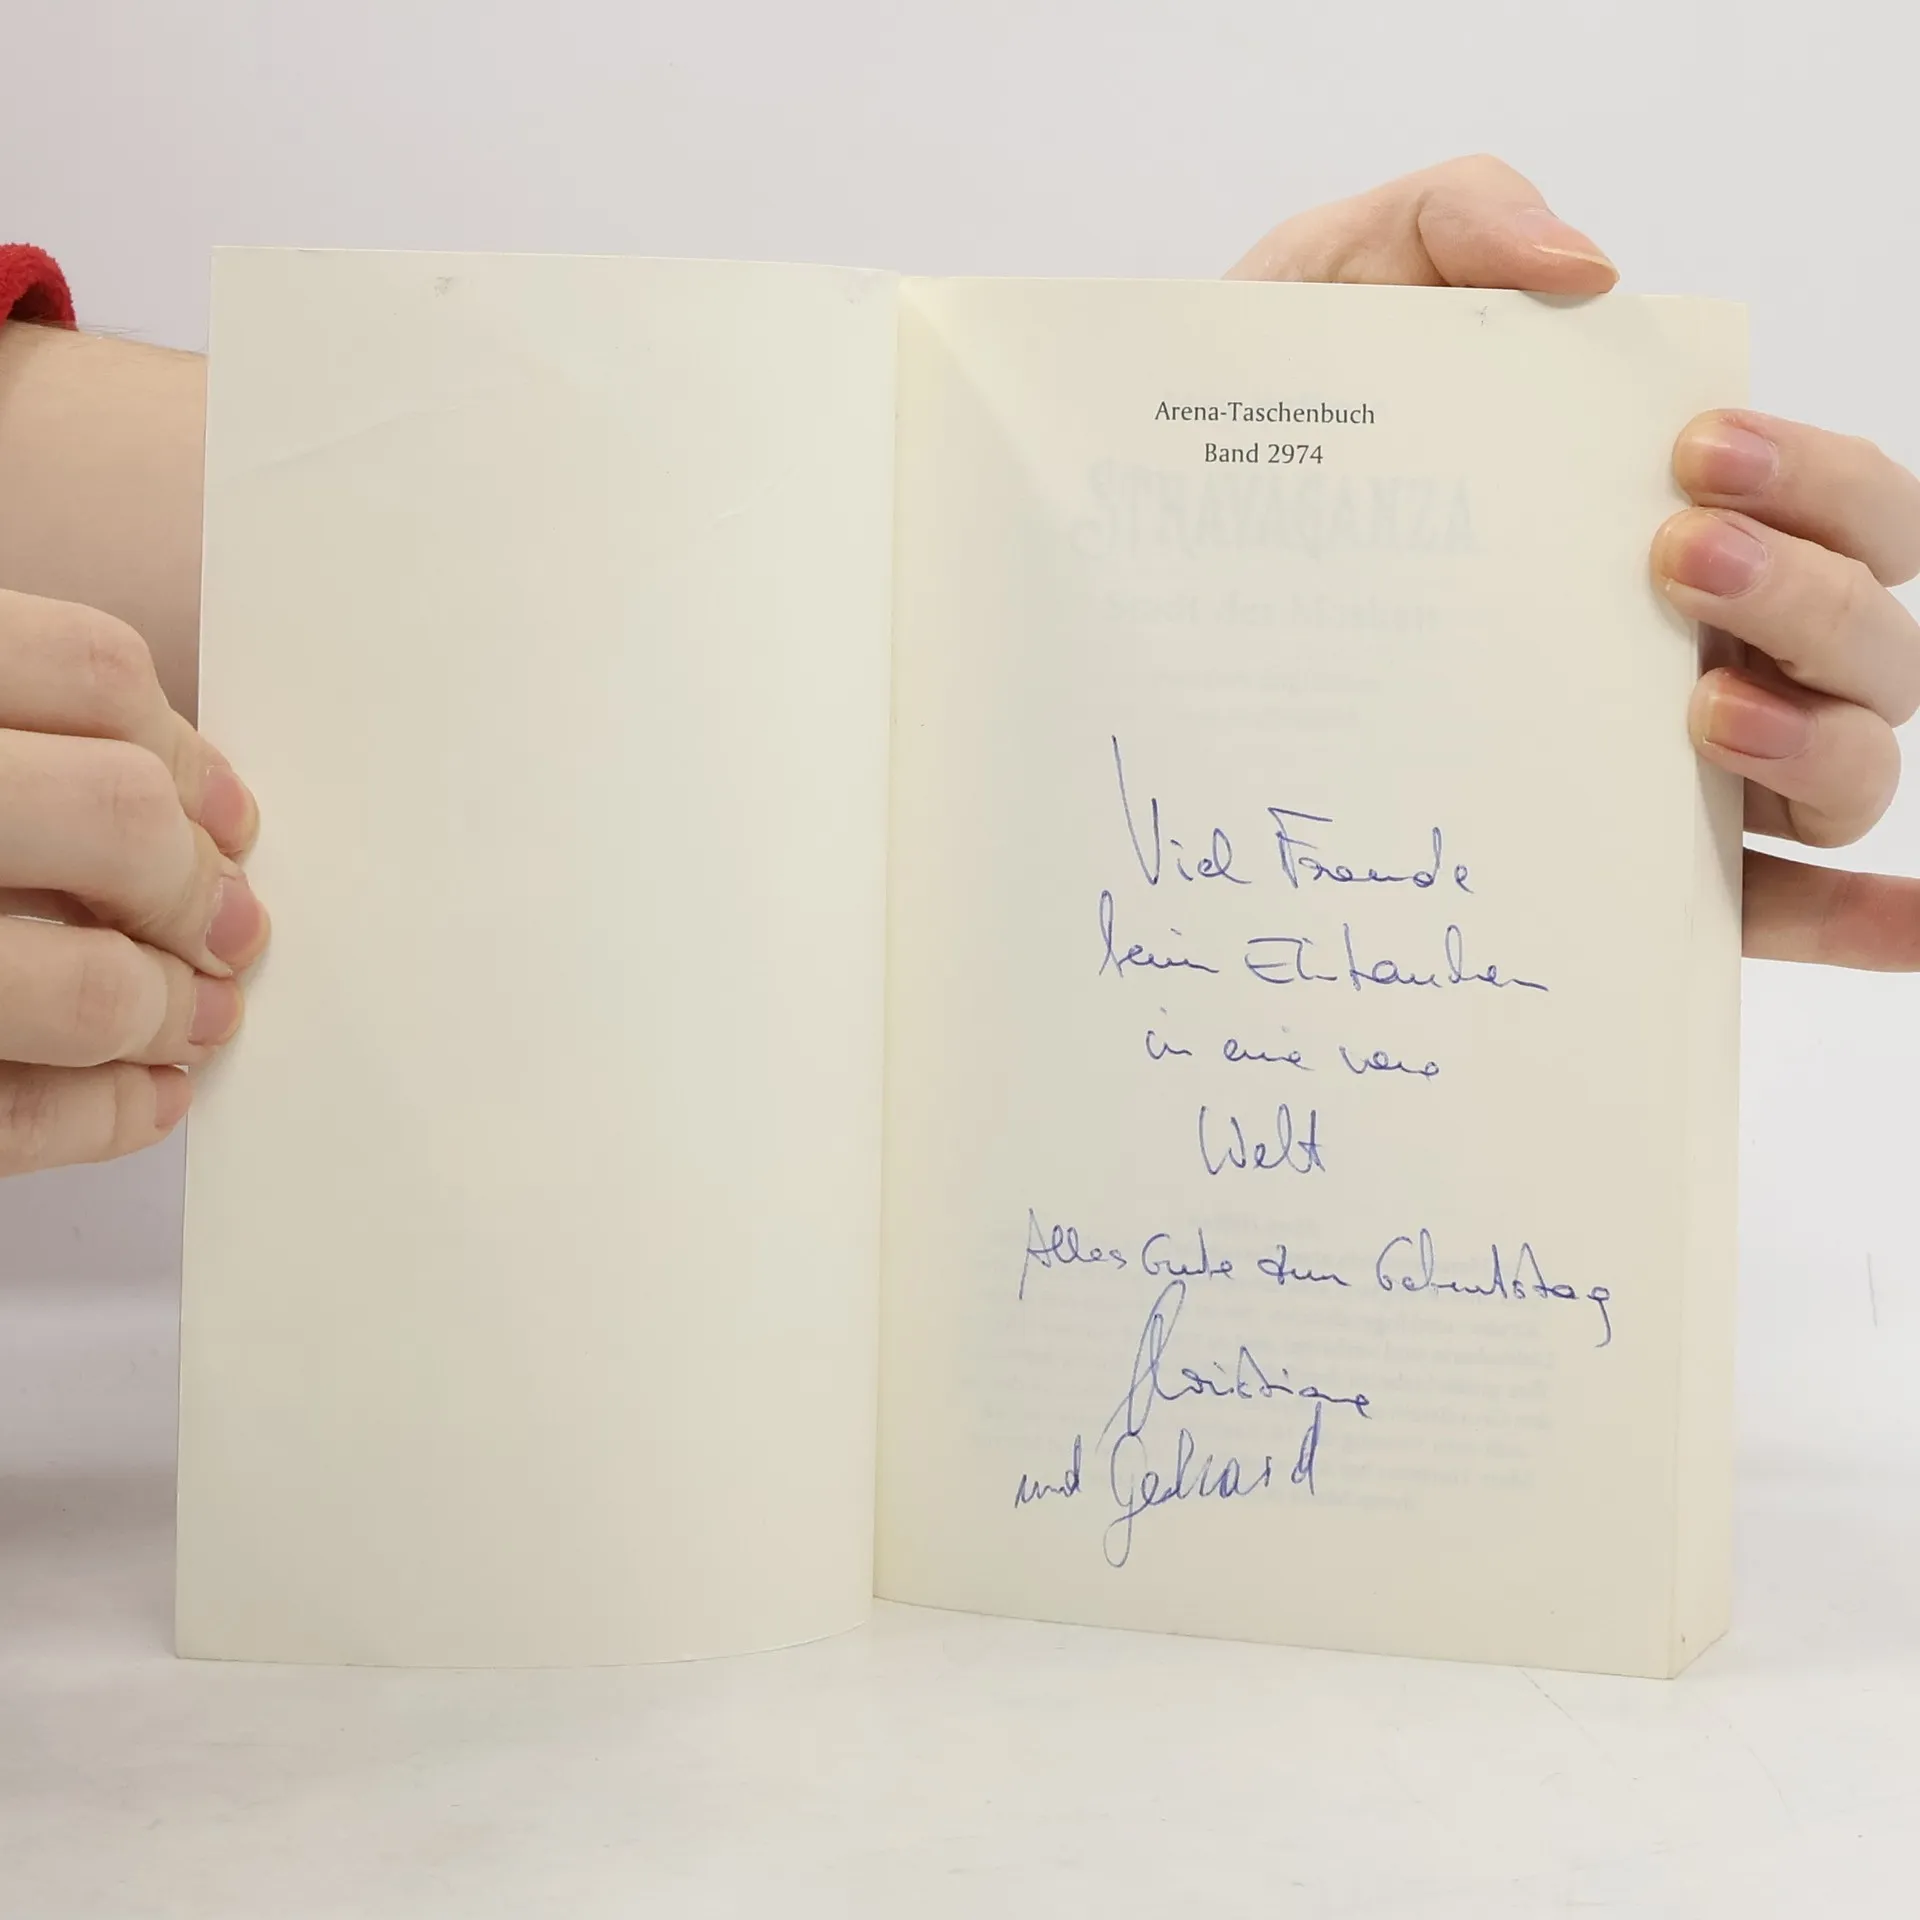 Arena-Taschenbuch
Band 2974
Viel Freude
beim Eintauchen
in eine neue
Welt
Alles Gute zum Geburtstag
Christiane
und Gerhard